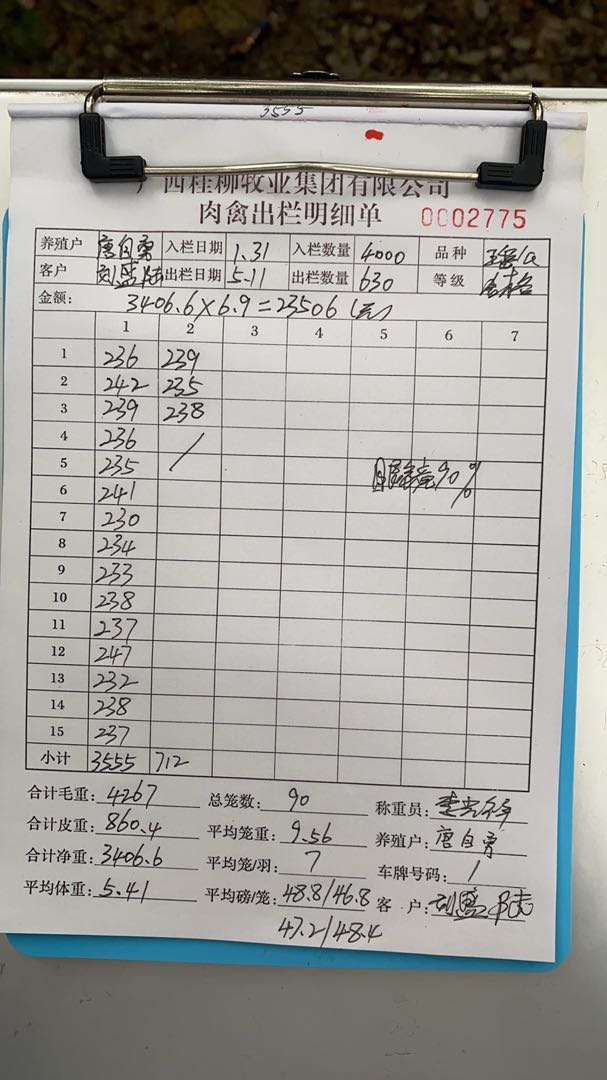 3555
广西桂柳牧业集团有限公司
肉禽出栏明细单 0002775
养殖户 唐自勇 入栏日期 1.31 入栏数量 4000 品种
客户 刘盛陆 出栏日期 5.11 出栏数量 630 等级
金额: 3406.6×6.9=23506(元)
1 2 3 4 5 6 7
1 236 239
2 242 235
3 239 238
4 236 /
5 235 90%
6 241
7 230
8 234
9 233
10 238
11 237
12 247
13 232
14 238
15 237
小计 3555 712
合计毛重: 4267 总笼数: 90 称重员:
合计皮重: 860.4 平均笼重: 9.56 养殖户: 唐自勇
合计净重: 3406.6 平均笼/羽: 7 车牌号码: 1
平均体重: 5.41 平均磅/笼: 48.8/46.8 客 户: 刘盛陆
47.2/48.4